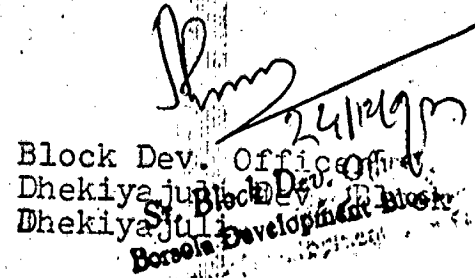 Block Dev. Officer,
Dhekiyajuli Dev. Block
Dhekiyajuli
Block Dev. Officer
Borsola Development Block